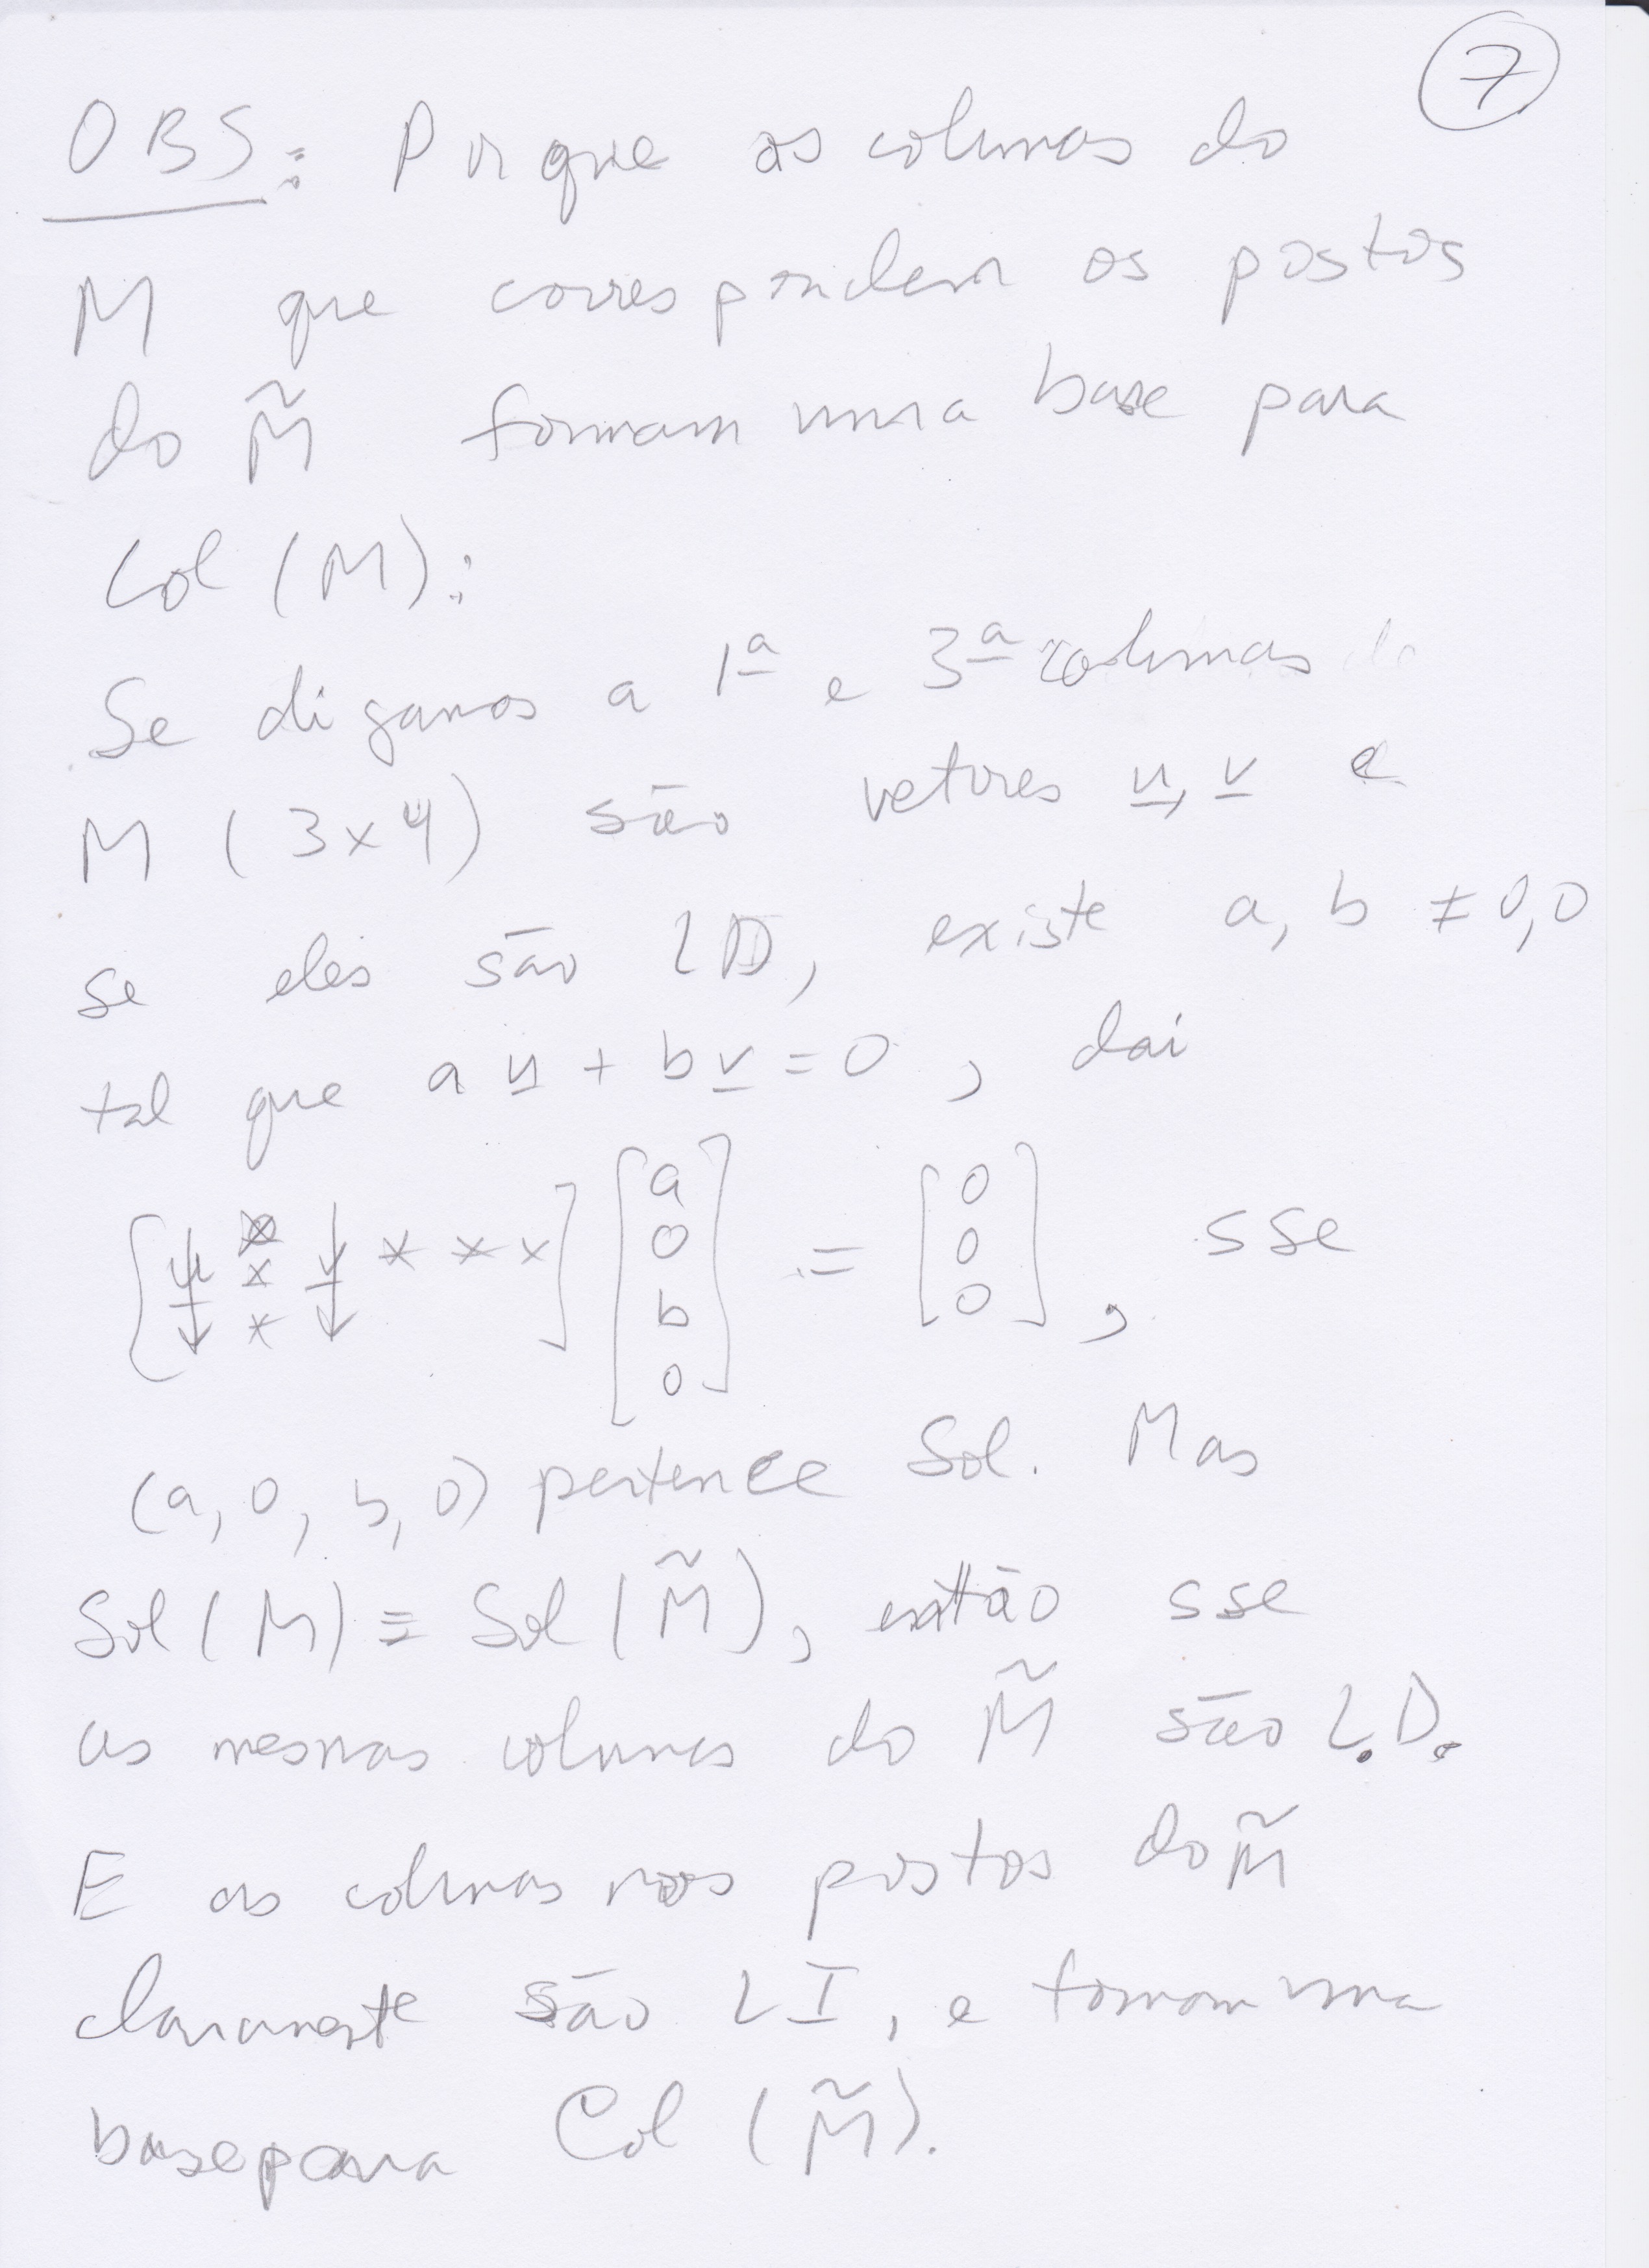 7
OBS: Porque as colunas do
M que correspondem os postos
do M̃ formam uma base para
Col (M):
Se digamos a 1ª e 3ª colunas do
M (3x4) são vetores u, v e
se eles são LD, existe a, b ≠ 0,0
tal que a u + b v = 0, dai
[u * v * * *] [a 0 b 0] = [0 0 0], sse
(a, 0, b, 0) pertence Sol. Mas
Sol(M) = Sol(M̃), então sse
as mesmas colunas do M̃ são L.D.
E as colunas nos postos do M̃
claramente são LI, e formam uma
base para Col (M̃).